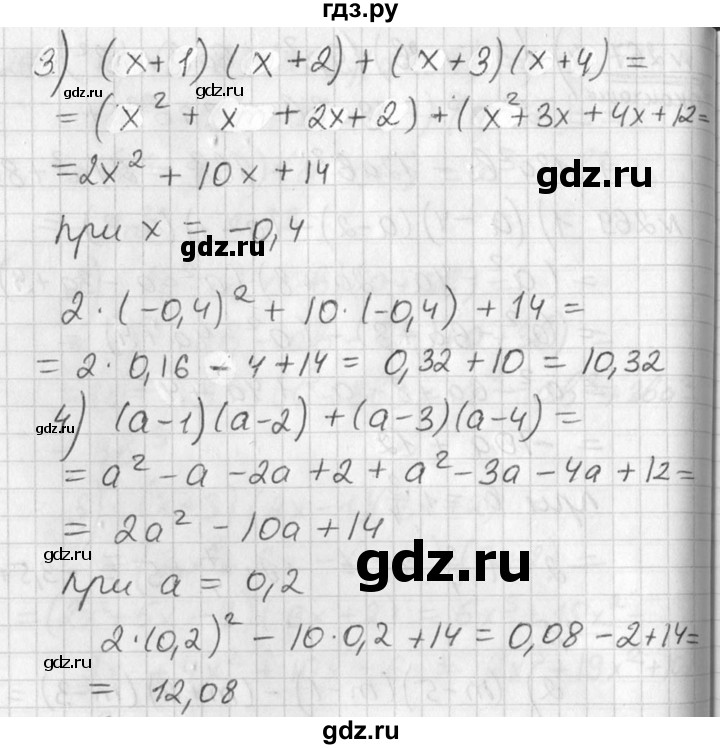 гдз.ру
3) (x+1)(x+2)+(x+3)(x+4)=
gdz.ru gdz.ru
=(x²+x+2x+2)+(x²+3x+4x+12=
=2x²+10x+14
gdz.ru
при x=-0,4
gdz.ru
2·(-0,4)²+10·(-0,4)+14=
=2·0,16-4+14=0,32+10=10,32
4) (a-1)(a-2)+(a-3)(a-4)=
gdz.ru
=a²-a-2a+2+a²-3a-4a+12=
=2a²-10a+14
gdz.ru
gdz.ru
при a=0,2
2·(0,2)²-10·0,2+14=0,08-2+14=
gdz.ru
=12,08
gdz.ru